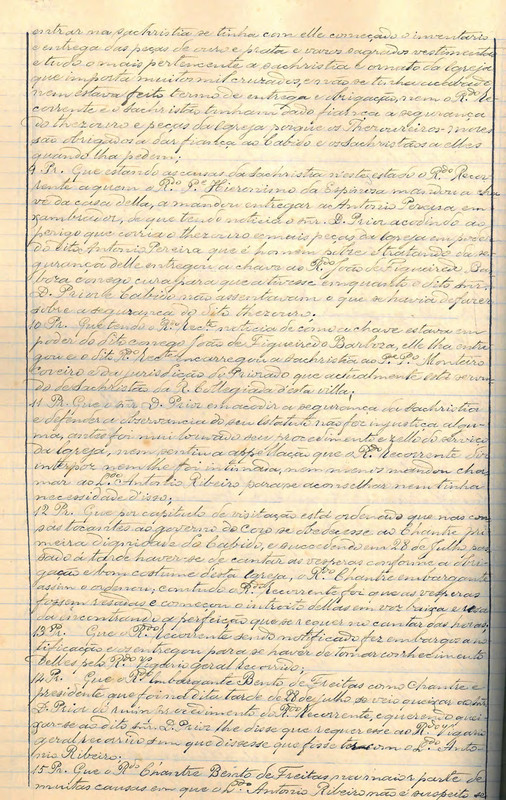 entrar na sachristia se tinha com elle começado o inventario
e entrega das peças de ouro e prata e varos sagrados vestimentas
e tudo o mais pertencente a sachristia e ornato da Igreja
que importa muitos mil cruzados, e não se tinha acabado
nem estava feito termo de entrega e obrigação, nem o Rdo Re-
corrente e sachristão tinham dado fiança a segurança
do thezouro e peças da Igreja porque os Thezoureiros-mores
são obrigados a dar fiança ao Cabido e os Sachristães a elles
quando lha pedem;
9 Pr. Que estando as causas da sachristia neste estado o Rdo Recor-
rente a quem o Rdo Pe Hieronimo da Espinoza mandou a cha-
ve da casa della, a mandou entregar a Antonio Pereira em-
xambrador, de que tendo noticia o snr. D. Prior acodindo ao
perigo que corria o thezouro e mais peças da Igreja em poder
do dito Antonio Pereira que é homem pobre e tratando da se-
gurança delle entregou a chave ao Rdo João de Figueiredo Bar-
boza conego cura para que a tivesse emquanto o dito snr.
D. Prior e Cabido não assentavam o que se havia de fazer
sobre a segurança do dito thezouro;
10 Pr. Que tendo o Rdo Recte noticia de como a chave estava em
poder do dito conego João de Figueiredo Barboza, elle lha entre-
gou e o dito Rdo Recte encarregou a sachristia ao Pe Po Monteiro
coreiro e da jurisdição do Priorado que actualmente está servin-
do de sachristão da R. Collegiada d'esta villa;
11 Pr. Que o snr. D. Prior em acodir a segurança da sachristia
e defender a observancia do seu Estatuto não fez injustiça algu-
ma, antes foi mui louvado seu procedimento e zello do serviço
da Igreja, nem sentiu a appellação que o Rdo Recorrente diz
interpor nem lhe foi intimada, nem menos mandou cha-
mar ao Ldo Antonio Ribeiro para se aconselhar nem tinha
necessidade d'isso;
12 Pr. Que por capitulo de visitação está ordenado que nas cou-
sas tocantes ao governo do Coro se obedecesse ao Chantre pri-
meira dignidade do Cabido, e succedendo em 28 de Julho pas-
sado á tarde haver-se de cantar as vesperas conforme a obri-
gação e bom costume d'esta Igreja, o Rdo Chantre embargante
assim o ordenou, comtudo o Rdo Recorrente foi que as vesperas
fossem resadas e começou o introito dellas em voz baixa e resa-
da encontrando a perfeição que se requer no cantar das horas;
13 Pr. Que o Rdo Recorrente sendo notificado fez embargo a no-
tificação e os entregou para se haver de tomar conhecimento
delles pelo Rdo Vigario Geral Recorrido;
14 Pr. Que o Rdo Embargante Bento de Freitas como Chantre e
presidente que foi na dita tarde de 28 de julho se veio queixar ao snr.
D. Prior do ruim procedimento do Rdo Recorrente, e querendo quei-
xar-se ao dito snr. D. Prior lhe disse que requeresse ao Rdo Vigario
geral recorrido sem que dissesse que fosse ter com o Ldo Anto-
nio Ribeiro;
15 Pr. Que o Rdo Chantre Bento de Freitas na maior parte de
muitas causas em que o Ldo Antonio Ribeiro não é suspeito se